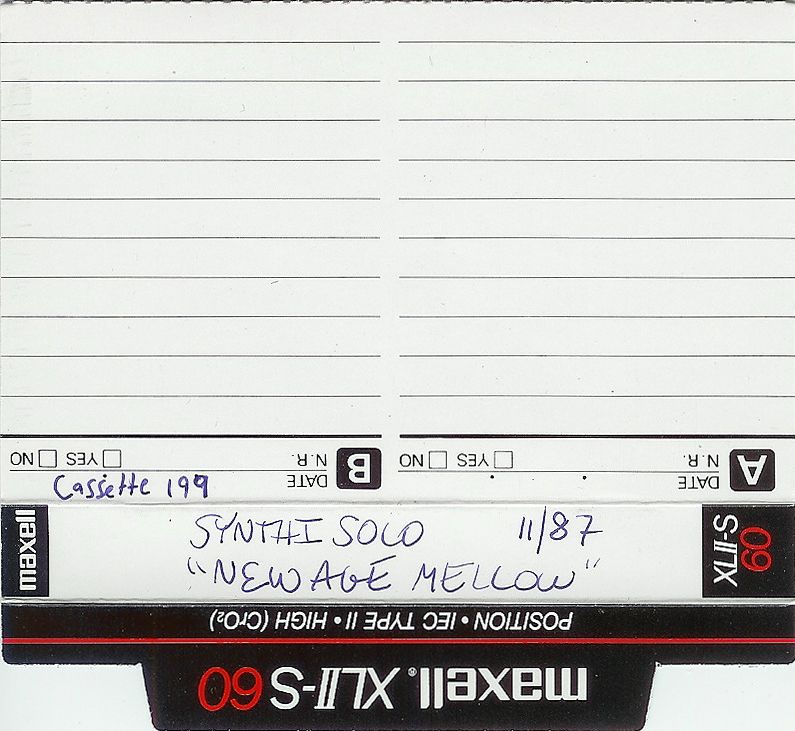 A DATE
N.R. YES NO
B DATE
N.R. YES NO
Cassette 199
maxell
SYNTHI SOLO 11/87
"NEW AGE MELLOW"
XLII-S 60
POSITION • IEC TYPE II • HIGH (CrO₂)
maxell® XLII-S 60